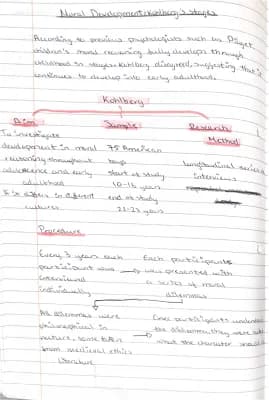 Moral Development: Kohlberg 3 stages
According to previous psychologists such as Piaget
children's moral reasoning fully develops through
childhood in stages. Kohlberg disagreed, suggesting that it
continues to develop into early adulthood.
Kohlberg
Aim
To investigate
development in moral
reasoning throughout
adolescence and early
adulthood
& if it differs in different
cultures.
Sample
75 American
boys
start of study
10-16 years
end of study
22-28 years
Research
Method
longitudinal
interviews
Procedure
Every 3 years each
participant was
interviewed
individually
Each participant
was presented with
a series of moral
dilemmas
All dilemmas were
philosophical in
nature, some taken
from medieval ethics
literature
Once participants understood
the dilemma, they were asked
what the character should